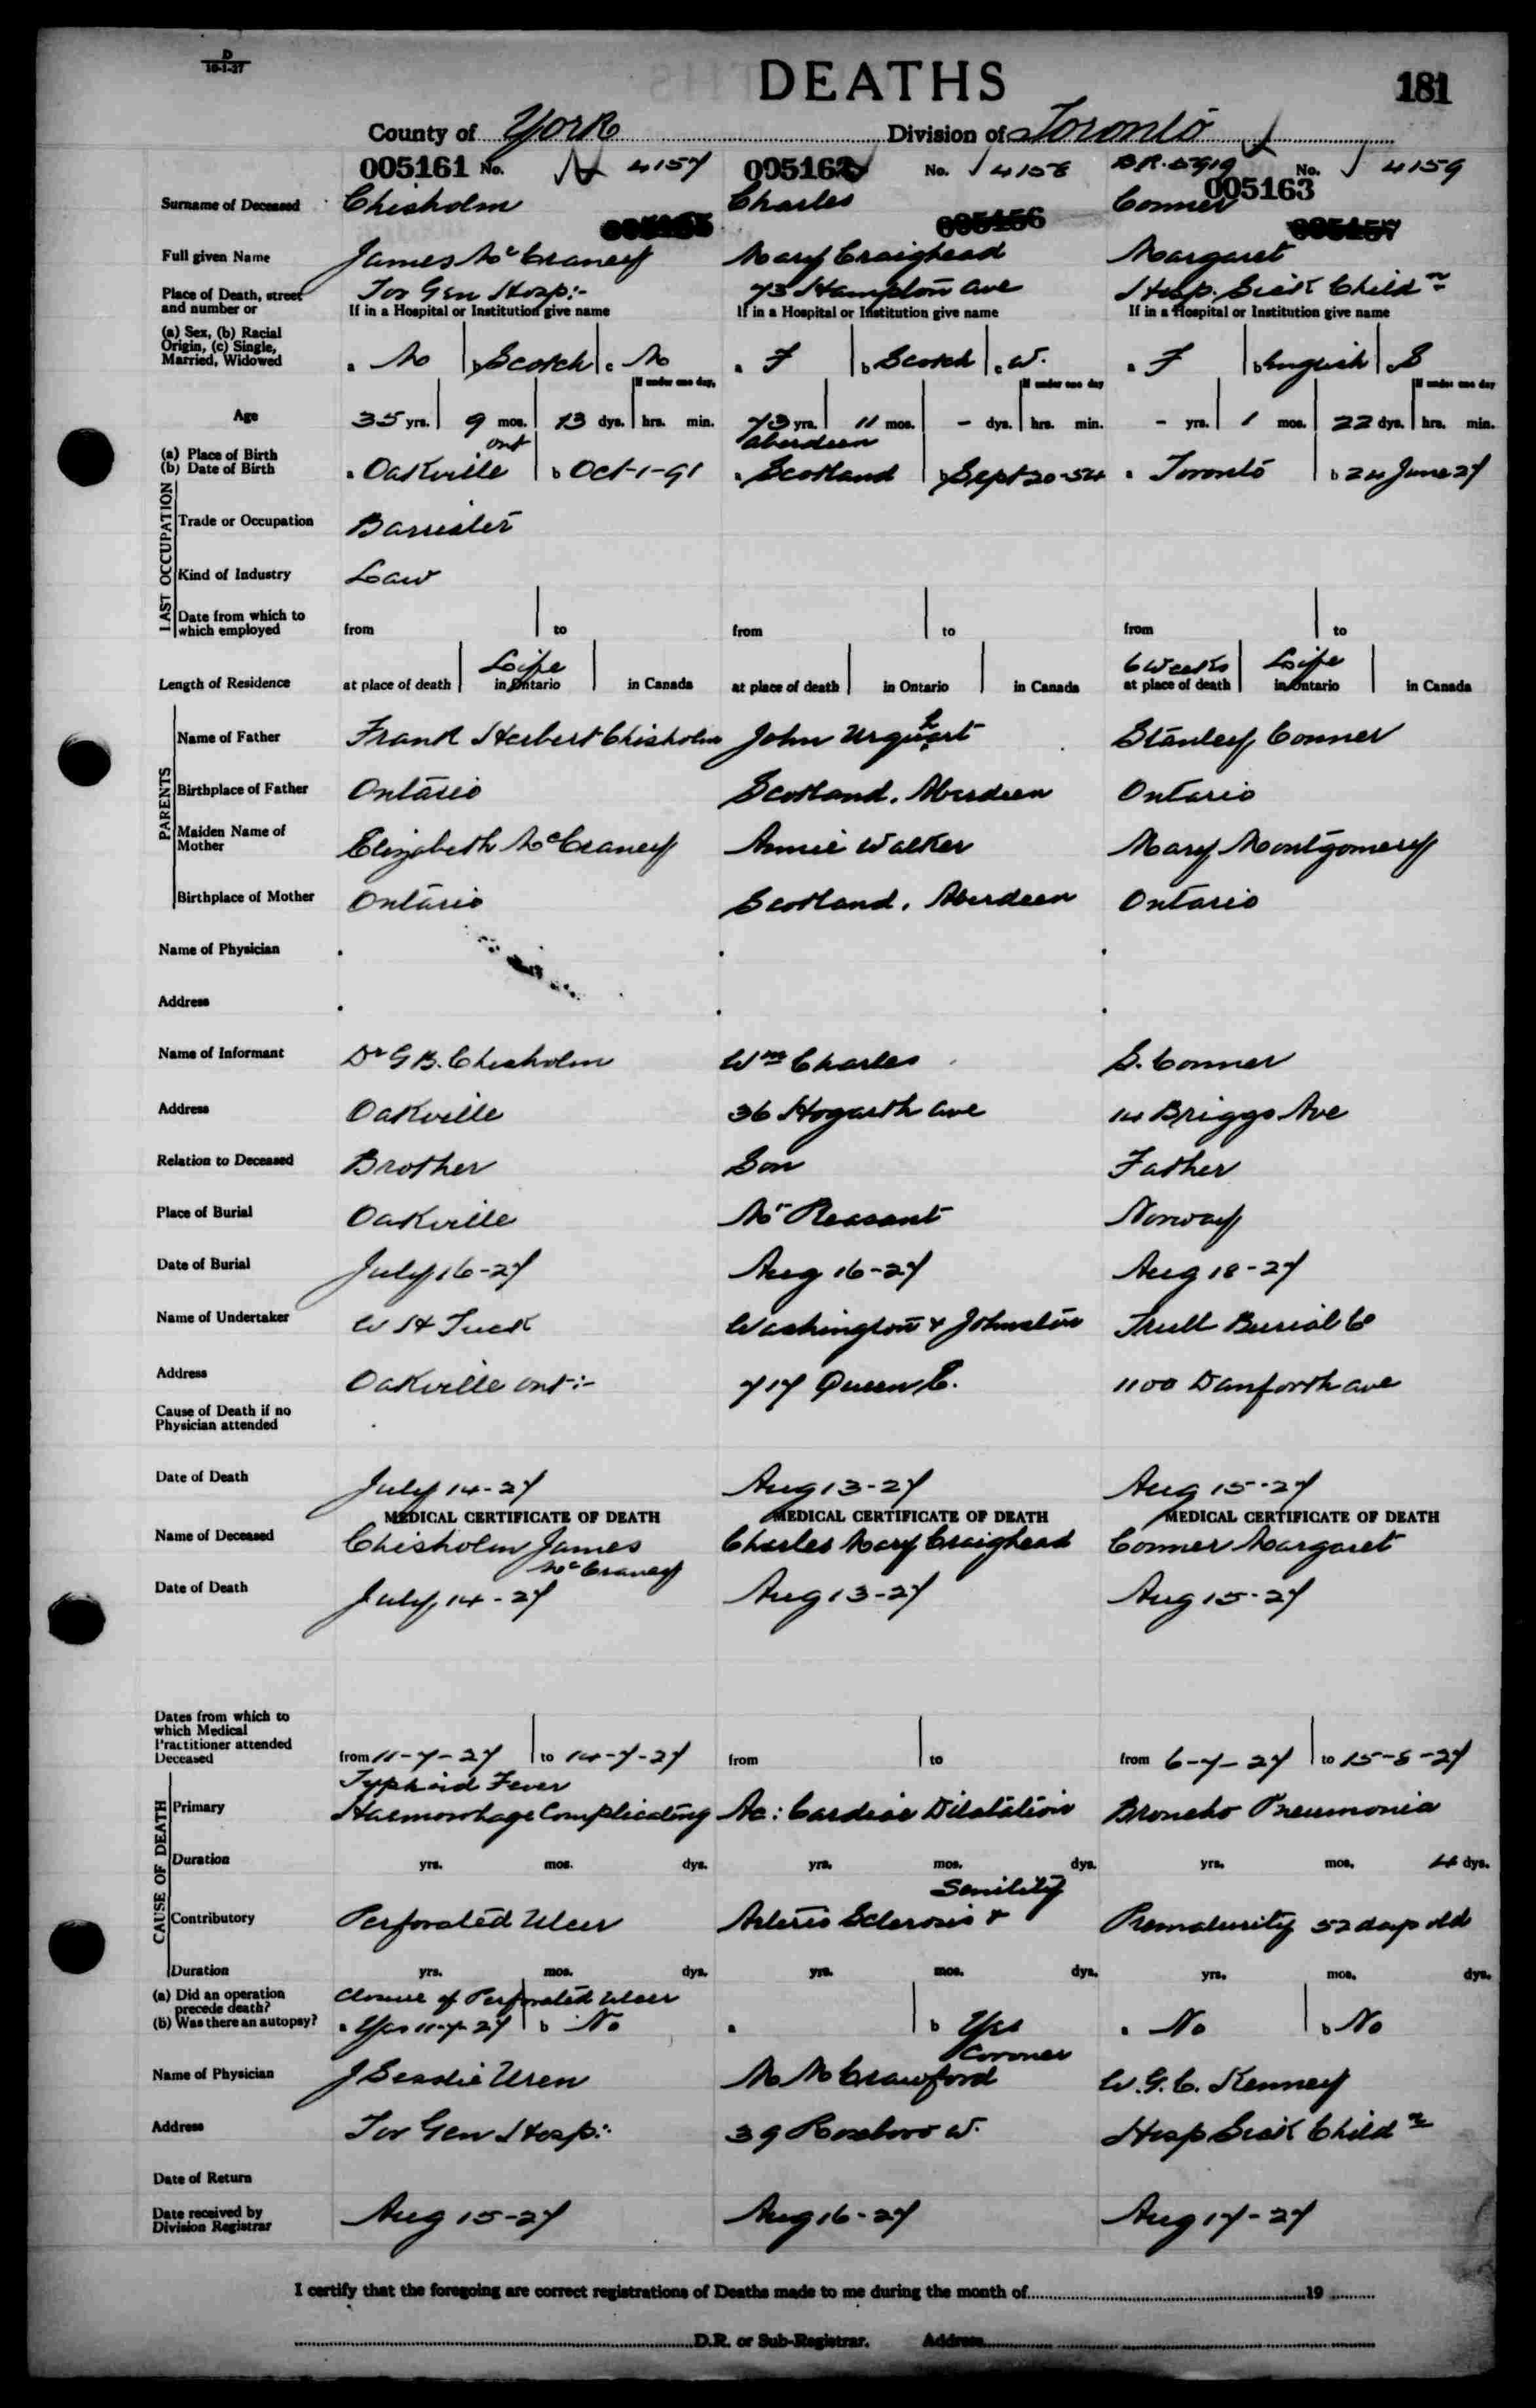 D
10-1-27
DEATHS
181
County of York Division of Toronto
005161 No. 4157 005162 No. 4158 B.R. 5719 No. 4159
005163
Surname of Deceased Chisholm Charles Conner
005155 005156 005157
Full given Name James McCraney Mary Craighead Margaret
Place of Death, street and number or Tor Gen Hosp:- 73 Hampton Ave Hosp. Sick Childn
If in a Hospital or Institution give name If in a Hospital or Institution give name If in a Hospital or Institution give name
(a) Sex, (b) Racial Origin, (c) Single, Married, Widowed a M b Scotch c M a F b Scotch c W. a F b English c S
If under one day, If under one day If under one day
Age 35 yrs. 9 mos. 13 dys. hrs. min. 73 yrs. 11 mos. - dys. hrs. min. - yrs. 1 mos. 22 dys. hrs. min.
(a) Place of Birth ont Aberdeen
(b) Date of Birth a Oakville b Oct-1-91 a Scotland b Sept 20-54 a Toronto b 24 June 27
LAST OCCUPATION
Trade or Occupation Barrister
Kind of Industry Law
Date from which to which employed from to from to from to
Life 6 Weeks Life
Length of Residence at place of death in Ontario in Canada at place of death in Ontario in Canada at place of death in Ontario in Canada
PARENTS
Name of Father Frank Herbert Chisholm John Urquhart Stanley Conner
Birthplace of Father Ontario Scotland, Aberdeen Ontario
Maiden Name of Mother Elizabeth McCraney Annie Walker Mary Montgomery
Birthplace of Mother Ontario Scotland, Aberdeen Ontario
Name of Physician
Address
Name of Informant Dr G B. Chisholm Wm Charles S. Conner
Address Oakville 36 Hogarth Ave 14 Briggs Ave
Relation to Deceased Brother Son Father
Place of Burial Oakville Mt Pleasant Norway
Date of Burial July 16-27 Aug 16-27 Aug 18-27
Name of Undertaker W H Tuck Washington & Johnston Trull Burial Co
Address Oakville ont:- 717 Queen E. 1100 Danforth ave
Cause of Death if no Physician attended
Date of Death July 14-27 Aug 13-27 Aug 15-27
MEDICAL CERTIFICATE OF DEATH MEDICAL CERTIFICATE OF DEATH MEDICAL CERTIFICATE OF DEATH
Name of Deceased Chisholm James McCraney Charles Mary Craighead Conner Margaret
Date of Death July 14-27 Aug 13-27 Aug 15-27
Dates from which to which Medical Practitioner attended Deceased from 11-7-27 to 14-7-27 from to from 6-7-27 to 15-8-27
CAUSE OF DEATH
Typhoid Fever
Primary Haemorrhage Complicating Ac: Cardiac Dilatation Broncho Pneumonia
Duration yrs. mos. dys. yrs. mos. dys. yrs. mos. 4 dys.
Senility
Contributory Perforated Ulcer Arterio Sclerosis & Prematurity 52 days old
Duration yrs. mos. dys. yrs. mos. dys. yrs. mos. dys.
(a) Did an operation precede death? Closure of Perforated Ulcer
(b) Was there an autopsy? a Yes 11-7-27 b No a b Yes a No b No
Coroner
Name of Physician J Beadie Uren M M Crawford W. G. C. Kenney
Address Tor Gen Hosp:. 39 Roxboro W. Hosp Sick Childn
Date of Return
Date received by Division Registrar Aug 15-27 Aug 16-27 Aug 17-27
I certify that the foregoing are correct registrations of Deaths made to me during the month of 19
D.R. or Sub-Registrar. Address